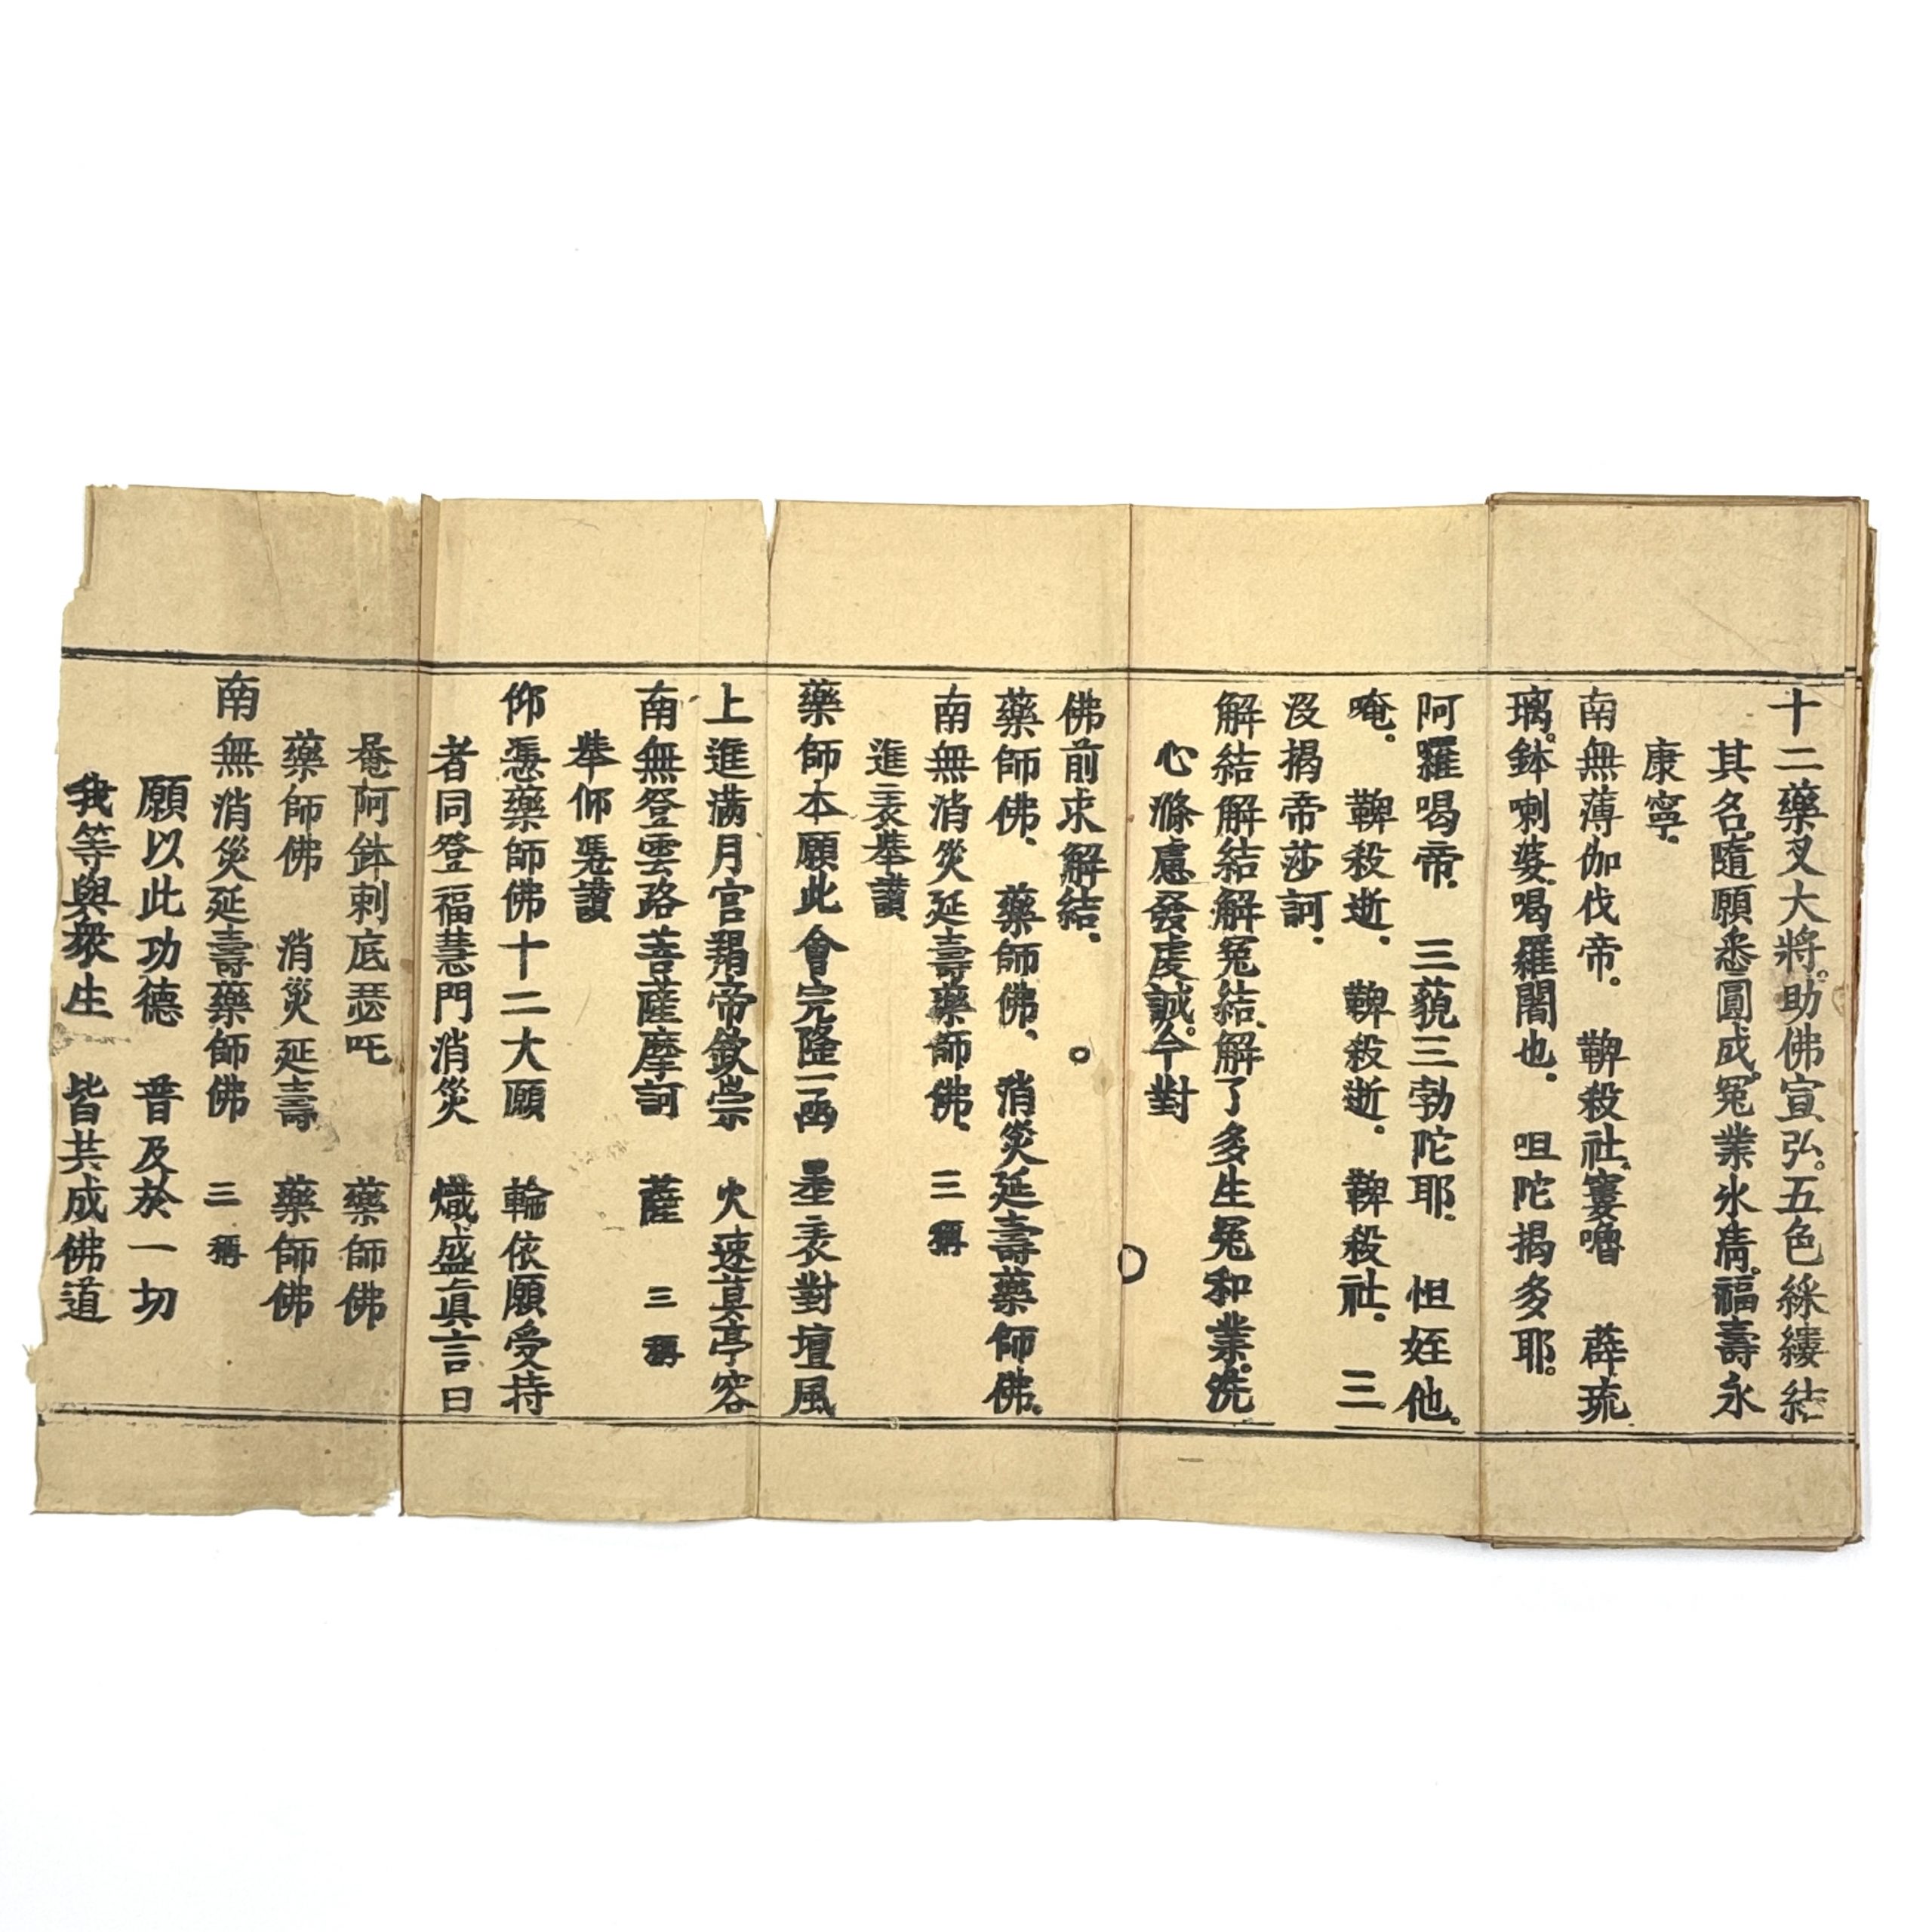 十二藥叉大將。助佛宣弘。五色綵縷結
其名。隨願悉圓成。冤業氷淸。福壽永
康寧.
南無薄伽伐帝。 鞞殺社.窶嚕 薜琉
璃。鉢喇婆.喝羅闍也. 呾陀揭多耶。
阿羅喝帝. 三藐三勃陀耶. 怛姪他。
唵。 鞞殺逝. 鞞殺逝。 鞞殺社. 三
沒揭帝莎訶.
解結解結解冤結.解了多生冤和業。洗
心滌慮發虔誠。今對
佛前求解結. 。
藥師佛、 藥師佛、 消災延壽藥師佛.
南無消災延壽藥師佛. 三稱
進表舉讚
藥師本願此會完隆一函 墨表對壇風
上進滿月宮羯帝欽崇 火速莫亭容
南無登雲路菩薩摩訶 薩 三稱
舉仰凴讚
仰凴藥師佛十二大願 輪依願受持
者同登福慧門消災 熾盛眞言曰
菴阿鉢剌底瑟吒 藥師佛
藥師佛 消災延壽 藥師佛
南無消災延壽藥師佛 三稱
願以此功德 普及於一切
我等與衆生 皆共成佛道